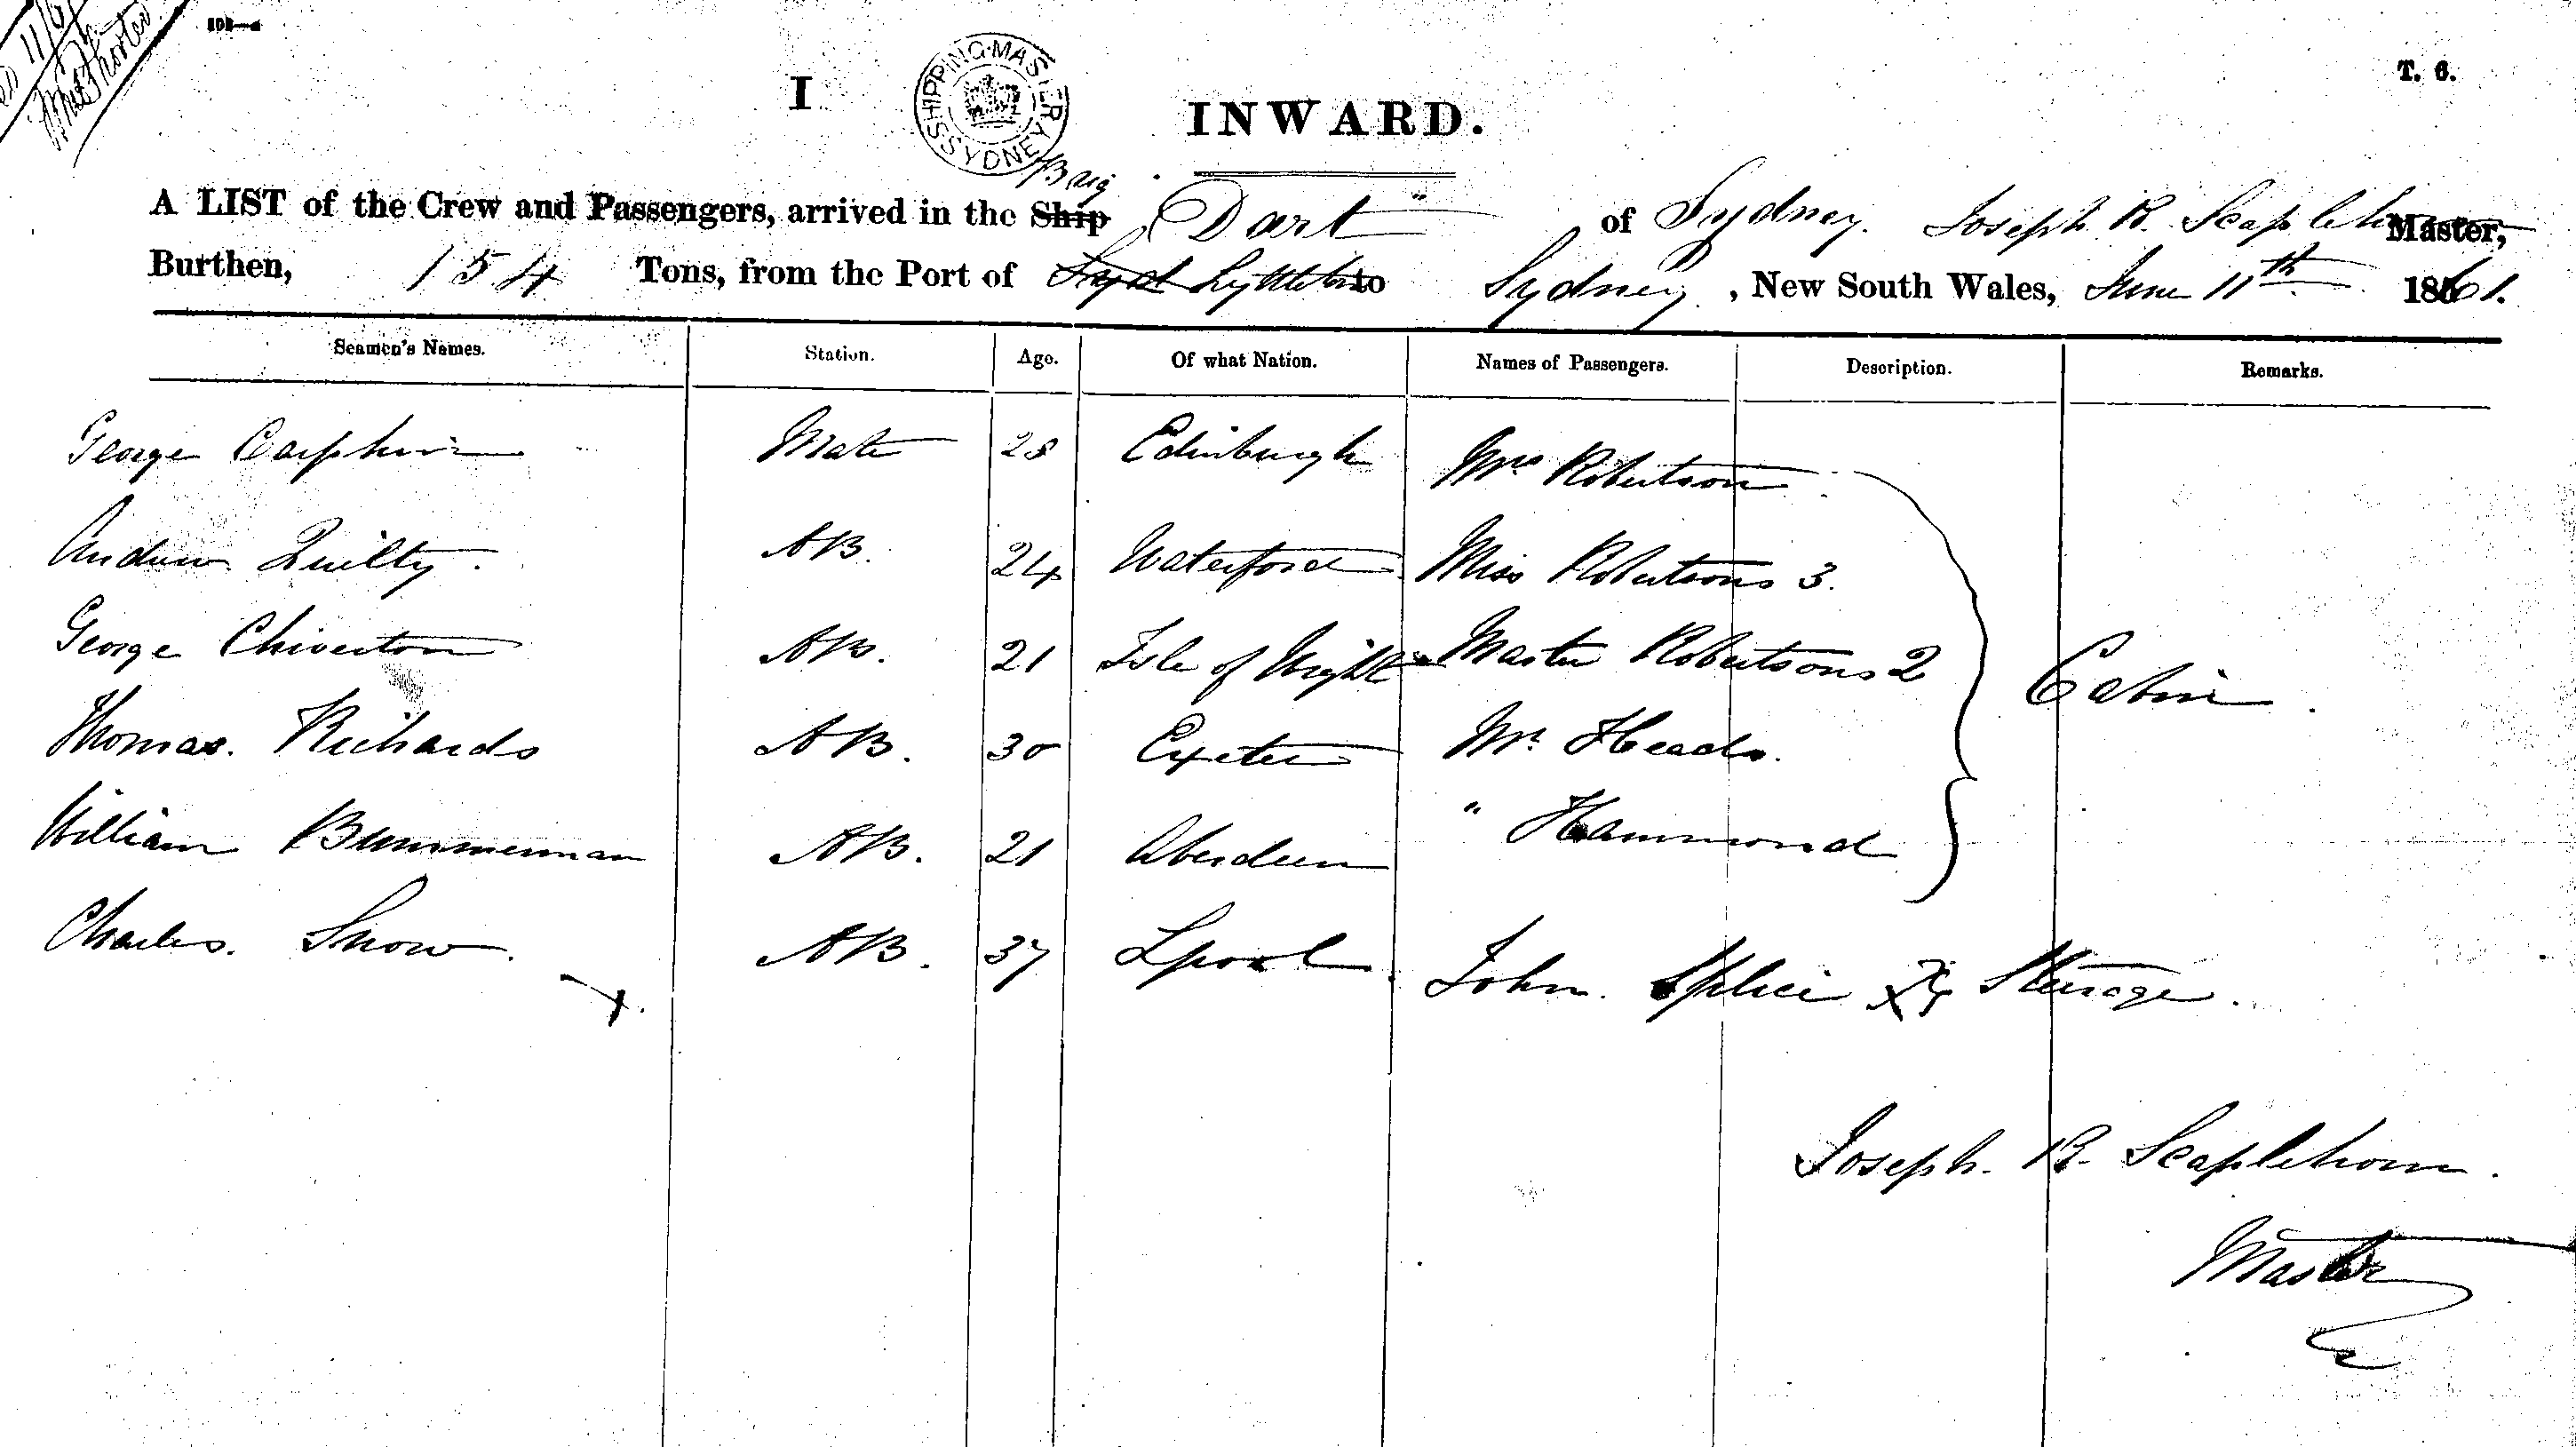 I
SHIPPING MASTER SYDNEY
INWARD.
T. 6.
Brig
A LIST of the Crew and Passengers, arrived in the Ship "Dart" of Sydney. Joseph R. Scaplehorn Master,
Burthen, 154 Tons, from the Port of Syd Lyttleton to Sydney, New South Wales, June 11th 1861.
Seamen's Names. Station. Age. Of what Nation. Names of Passengers. Description. Remarks.
George Carphin Mate 28 Edinburgh Mrs Robertson
Andrew Quilty. AB. 24 Waterford Miss Robertsons 3.
George Chiverton AB. 21 Isle of Wight Master Robertsons 2 Cabin.
Thomas. Richards AB. 30 Exeter Mr. Heads.
William Bummerman AB. 21 Aberdeen " Hammond
Charles. Snow. AB. 37 Lpool John. Splice Steerage.
Joseph. R. Scaplehorn.
Master